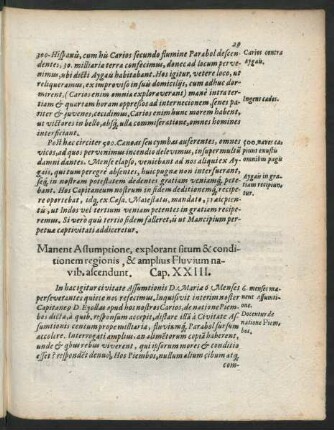 29
300. Hispanũ, cum his Carios secundo flumine Parabol descen-
dentes, 30. milliaria terra confecimus, donec ad locum perve-
nimus, ubi dicti Aygaũ habitabant. Hos igitur, vetere loco, ut
reliqueramus, ex improviso in suũ domicilijs, cum adhuc dor-
mirent, (Carios enim omnia exploraverant) mane intra ter-
tiam & quartam horam oppressos ad internecionem senes pa-
riter & juvenes, cecidimus, Carios enim hunc morem habent,
ut victores in bello, absq́; ulla commiseratione, omnes homines
interficiant.
Post hæc circiter 500. Canoas seu cymbas auferentes, omnes
vicos, ad quos pervenimus incendio delevimus, insuper multũ
damni dantes. Mense elapso, veniebant ad nos aliqui ex Ay-
gais, qui tum peregrè absentes, huic pugnæ non interfuerant,
seq́; in nostram potestatem dedentes gratiam veniamq́; pete-
bant. Hos Capitaneum nostrum in fidem deditionemq́; recipe-
re oportebat, idq́; ex Cæsa. Majestatis, mandato, præcipien-
tũ, ut Indos vel tertium veniam petentes in gratiam recipe-
remus, Si verò quis tertio fidem falleret, is ut Mancipium per-
petuæ captivitati addiceretur.
Manent Assumptione, explorant situm & condi-
tionem regionis, & amplius Fluvium na-
vib. ascendunt. Cap. XXIII.
In hac igitur civitate Assumtionis D. Mariæ 6. Menses
perseverantes quiete nos refecimus, Inquisivit interim noster
Capitaneus D. Eyollas apud hos nostros Carios, de natione Piem-
bos dicta, à quib. responsum accepit, distare illã à Civitate As-
sumtionis centum prope milliaria, fluviumq́; Parabol sursum
accolere. Interrogati amplius: an alimẽtorum copiã haberent,
unde & quibus rebus viverent, qui ipsorum mores & conditio
esset? respondẽt denuò, Hos Piembos, nullum alium cibum atq́;
com-
Carios contra
Aygaũs.
Ingens cædes.
500. naves ca-
piunt exustis
omnibus pagis
Aygaũs in gra-
tiam recipiun-
tur.
6. menses ma-
nent Assumti-
one.
Docentur de
natione Piem-
bos.